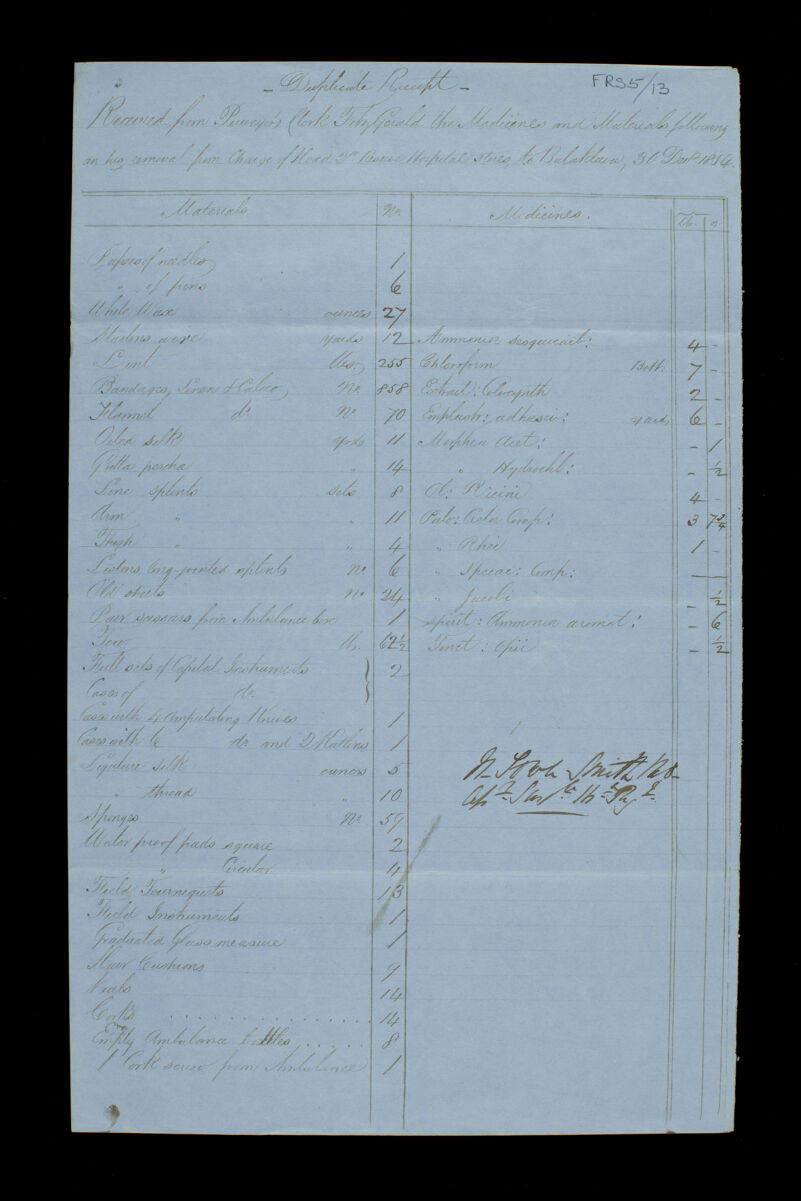 - Duplicate Receipt -
FRS5/13
Received from Purveyors Clerk FitzGerald the Medicines and Materials following
on his removal from Charge of Head Qrs Reserve Hospital Stores, to Balaklava, 30 Decr 1854.
Materials No. Medicines. lb. oz
Papers of needles 1
" of pins 6
White Wax ounces 27
Plasters yards 12 Ammonia sesquicarb: 4 -
Lint lbs. 255 Chloroform Bott. 7 -
Bandages, Linen & Calico, No. 858 Extract: Colocynth 2 -
Flannel do. No 70 Emplastr: adhesiv: yards 6 -
Oiled silk yds 11 Morphia Acet: - 1
Gutta percha " 14 " Hydrochl: - ½
Line splints sets 8 Ol: Ricini 4 -
Arm " " 11 Pulv: Comp: 3 7¾
Thigh " " 4 " Rhei 1 -
Listons long-jointed splints No 6 " Ipecac: Comp: - -
Old sheets No 24 " Jacobi - ½
Pair scissars from Ambulance box 1 Spirit: Ammonia aromat: - 6
Tow lb. 62½ Tinct: Opii - ½
Full sets of Capital Instruments } 2
Cases of do.
Cases with 4 Amputating Knives 1
Cases with 6 do and 2 Katlins 1
Ligature silk ounces 5
" thread " 10
Smith
Sponges No. 59
Water proof pads square 2
" Circular 4
Field Tourniquets 13
Field Instruments 1
Graduated Glass measure 1
Hair Cushions 9
Vials 14
Corks 14
Empty Ambulance bottles 8
1 Cork screw from Ambulance 1